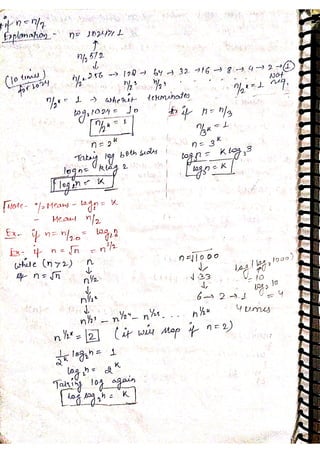 if n = n/7
Explanation - n = 1024 > 1
n/2 512
(10 times) for 1024
n/2² 256 → 128 → 64 → 32 → 16 → 8 → 4 → 2 → 1
n/2³
n/2ᵏ = 1
n/2ᵏ = 1 → when it terminates
log₂1024 = 10
n/2ᵏ = 1
n = 2ᵏ
Taking log both sides
logn = k log 2
log₂n = K
if n = n/3
n/3ᵏ = 1
n = 3ᵏ
logn = K log 3
log₃n = K
Note - n/2 Means - logn = K
- Means n/2
Ex - if n = n/20 =
Ex - if n = √n = n^1/2
while (n > 2)
if n = √n
n
↓
n^1/2
↓
n^1/2²
↓
n^1/2³ - n^1/2⁴ - n^1/2⁵ . . . . n^1/2ᵏ
n^1/2ᵏ = 2 (it will stop if n = 2)
1/2ᵏ log₂n = 1
log₂n = 2ᵏ
Taking log again
log log₂n = K
n = √1000
↓
√33
↓
6 → 2 → 1
log (log₂1000)
= 10
log₂10
= 4
4 times